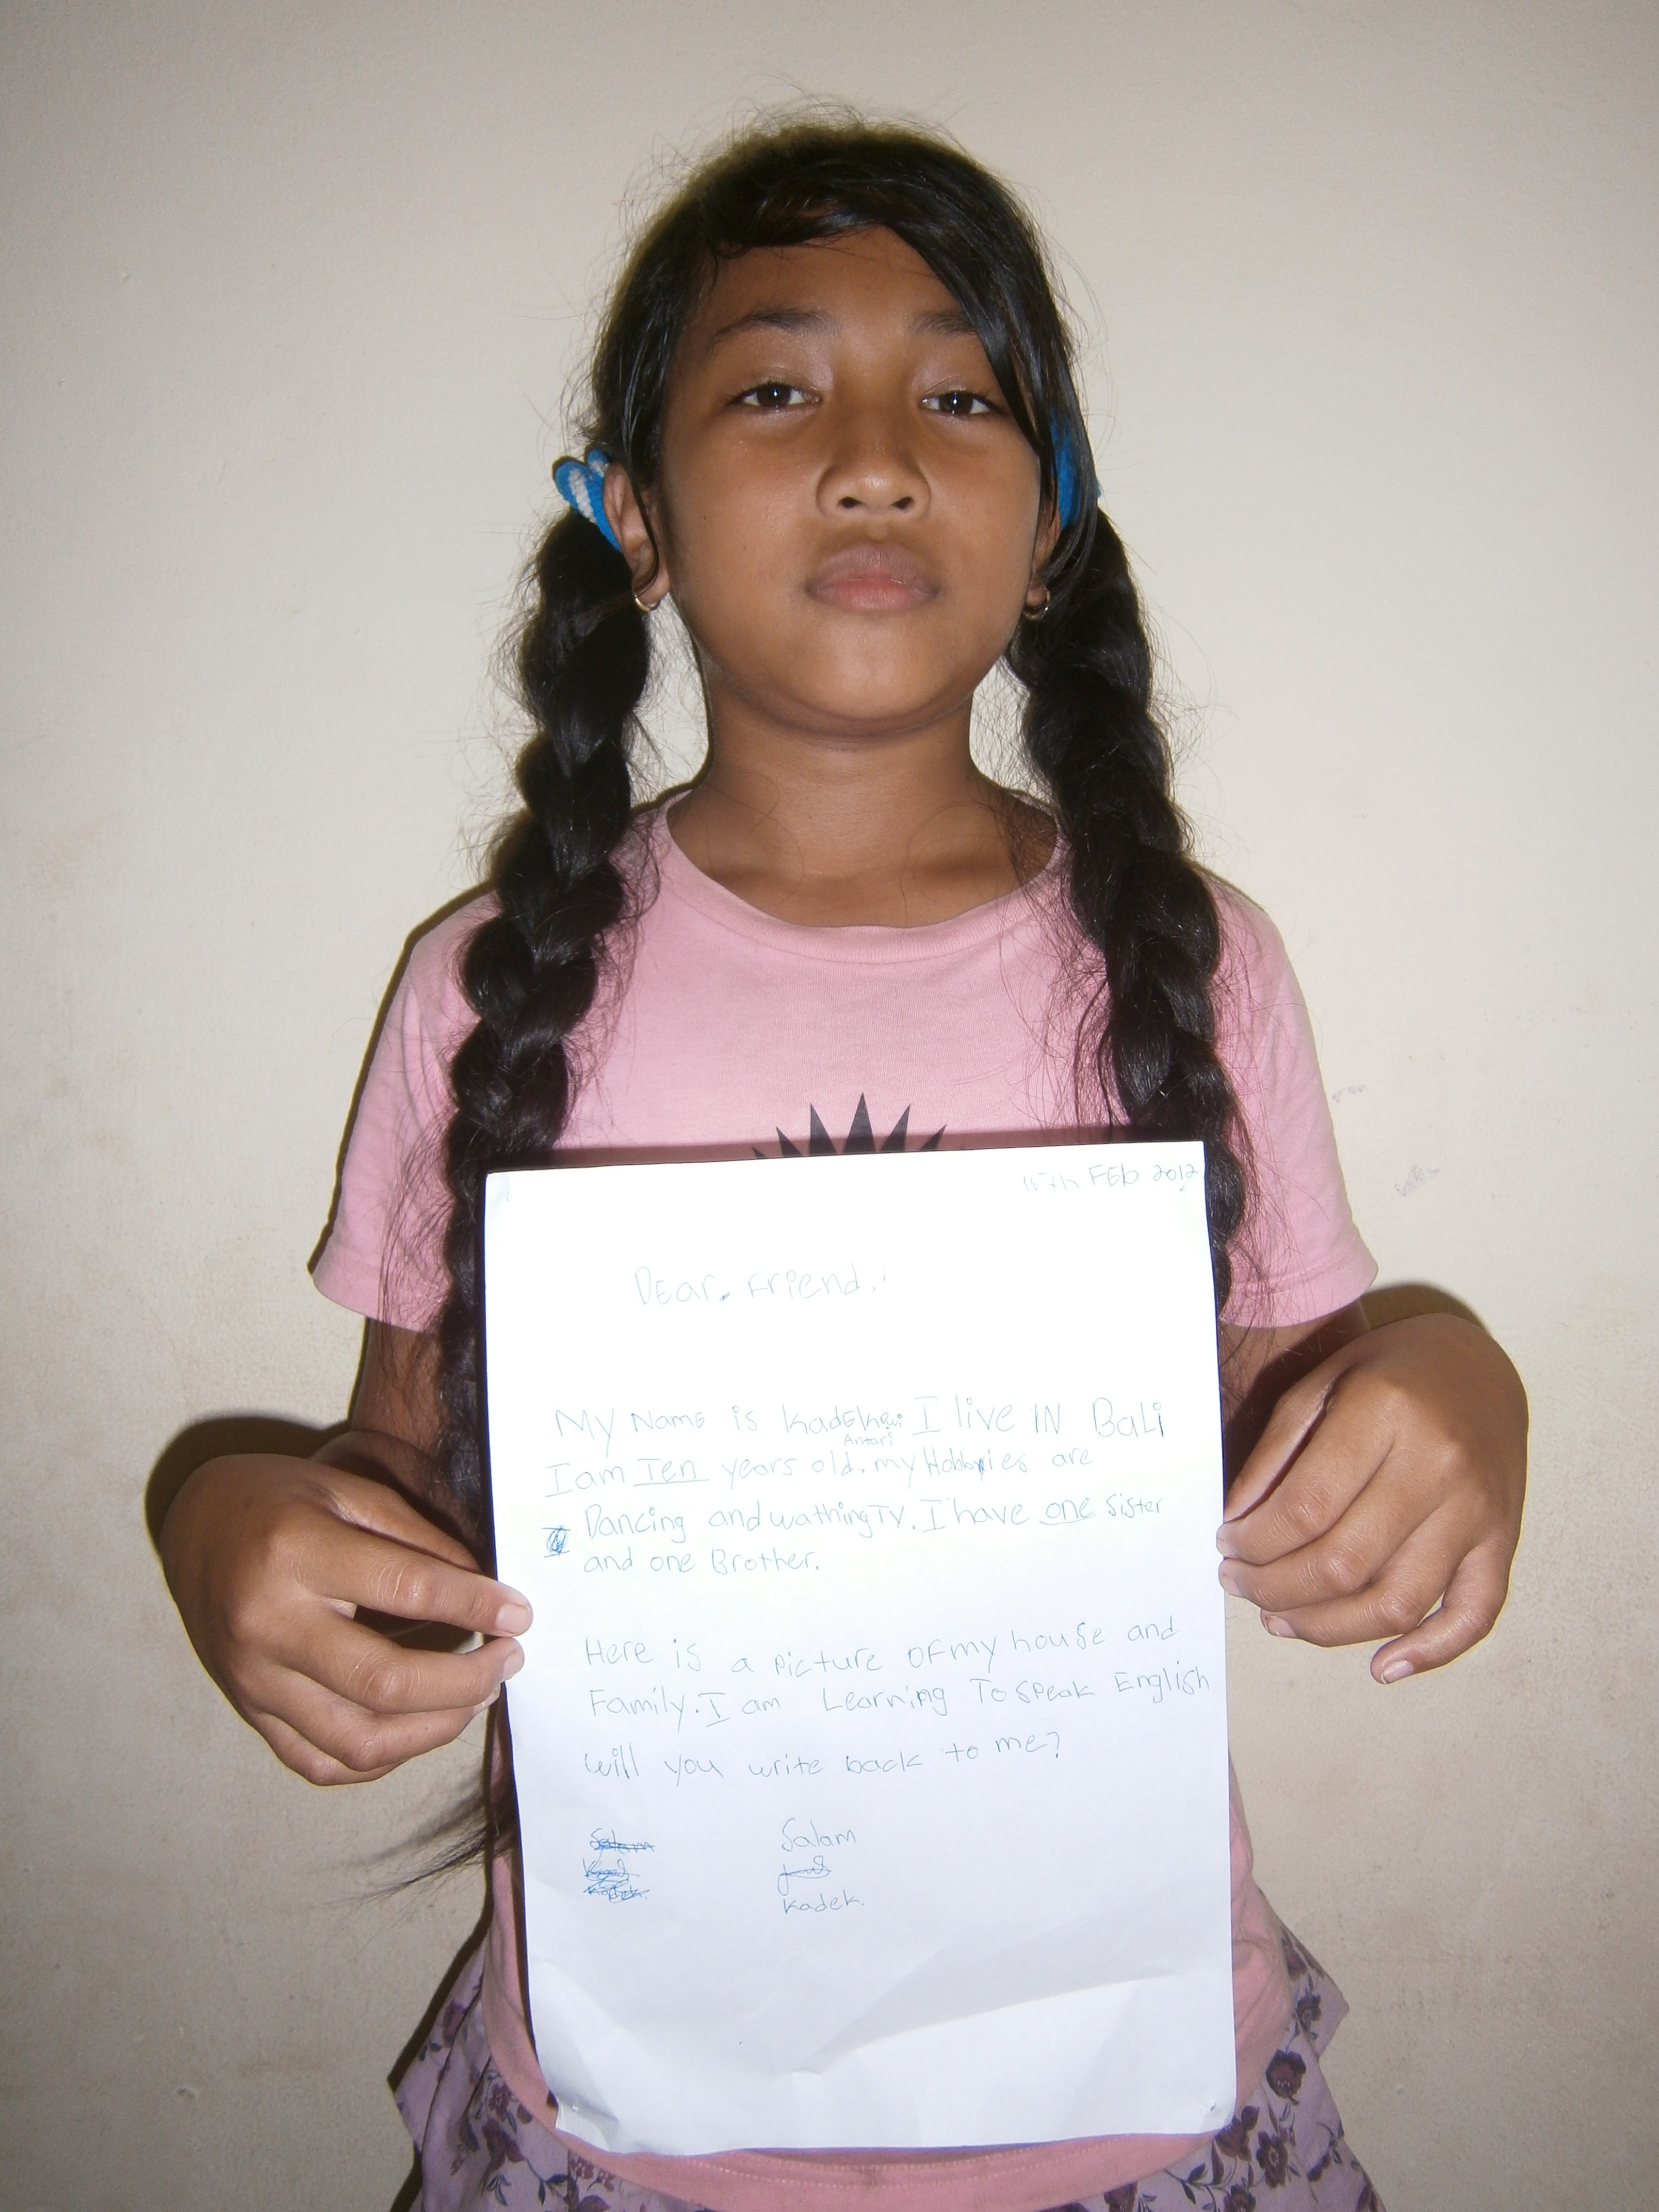 15th FEb 2012
DEar. Friend,
My Name is KadEk Dwi I live IN BaLi
Antari
I am Ten years old. my Hobbyies are
Dancing and wathing TV. I have one Sister
and one Brother.
Here is a picture OF my house and
Family. I am Learning To speak English
will you write back to me?
Salam
Kadek.